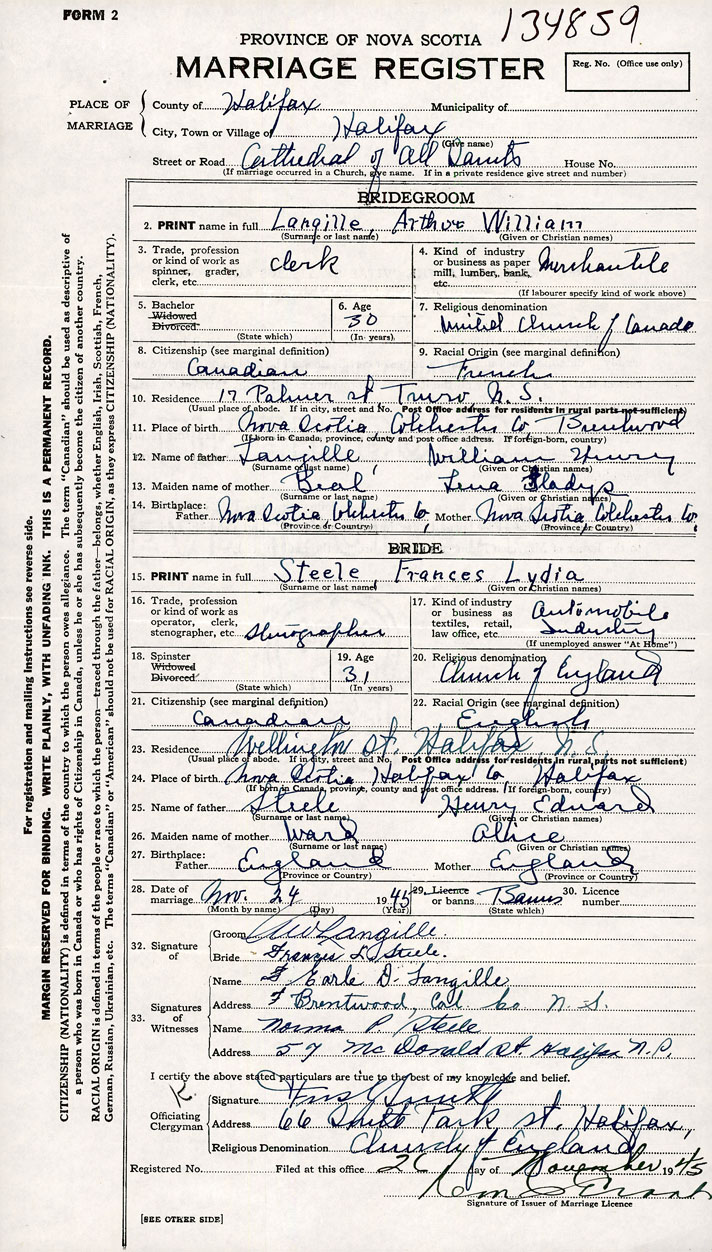 FORM 2
134859
PROVINCE OF NOVA SCOTIA
MARRIAGE REGISTER
Reg. No. (Office use only)
PLACE OF MARRIAGE
County of Halifax Municipality of
City, Town or Village of Halifax
(Give name)
Street or Road Cathedral of All Saints House No.
(If marriage occurred in a Church, give name. If in a private residence give street and number)
BRIDEGROOM
2. PRINT name in full Langille, Arthur William
(Surname or last name) (Given or Christian names)
3. Trade, profession or kind of work as spinner, grader, clerk, etc. Clerk
4. Kind of industry or business as paper mill, lumber, bank, etc. Merchantile
(If labourer specify kind of work above)
5. Bachelor Widowed Divorced (State which)
6. Age 30 (In years)
7. Religious denomination United Church of Canada
8. Citizenship (see marginal definition) Canadian
9. Racial Origin (see marginal definition) French
10. Residence 17 Palmer st Truro N.S.
(Usual place of abode. If in city, street and No. Post Office address for residents in rural parts not sufficient)
11. Place of birth Nova Scotia Colchester Co Brentwood
(If born in Canada, province, county and post office address. If foreign-born, country)
12. Name of father Langille, William Henry
(Surname or last name) (Given or Christian names)
13. Maiden name of mother Beal Lena Gladys
(Surname or last name) (Given or Christian names)
14. Birthplace: Father Nova Scotia, Colchester Co, Mother Nova Scotia Colchester Co,
(Province or Country) (Province or Country)
BRIDE
15. PRINT name in full Steele, Frances Lydia
(Surname or last name) (Given or Christian names)
16. Trade, profession or kind of work as operator, clerk, stenographer, etc. Stenographer
17. Kind of industry or business as textiles, retail, law office, etc. Automobile Industry
(If unemployed answer "At Home")
18. Spinster Widowed Divorced (State which)
19. Age 31 (In years)
20. Religious denomination Church of England
21. Citizenship (see marginal definition) Canadian
22. Racial Origin (see marginal definition) English
23. Residence Wellington St. Halifax, N.S.
(Usual place of abode. If in city, street and No. Post Office address for residents in rural parts not sufficient)
24. Place of birth Nova Scotia Halifax Co Halifax
(If born in Canada, province, county and post office address. If foreign-born, country)
25. Name of father Steele Henry Edward
(Surname or last name) (Given or Christian names)
26. Maiden name of mother Ward Alice
(Surname or last name) (Given or Christian names)
27. Birthplace: Father England Mother England
(Province or Country) (Province or Country)
28. Date of marriage Nov. 24 1945
(Month by name) (Day) (Year)
29. Licence or banns Banns (State which)
30. Licence number
32. Signature of
Groom AW Langille.
Bride Frances L. Steele.
33. Signatures of Witnesses
Name Earle D. Langille
Address Brentwood, Col. Co N.S.
Name Norma P. Steele
Address 57 McDonald St. Halifax N.S.
I certify the above stated particulars are true to the best of my knowledge and belief.
Officiating Clergyman
Signature
Address 66 South Park st, Halifax,
Religious Denomination Church of England
Registered No. Filed at this office 26 day of November 1945
Signature of Issuer of Marriage Licence
[SEE OTHER SIDE]
For registration and mailing instructions see reverse side.
MARGIN RESERVED FOR BINDING. WRITE PLAINLY, WITH UNFADING INK. THIS IS A PERMANENT RECORD.
CITIZENSHIP (NATIONALITY) is defined in terms of the country to which the person owes allegiance. The term "Canadian" should be used as descriptive of
a person who was born in Canada or who has rights of Citizenship in Canada, unless he or she has subsequently become the citizen of another country.
RACIAL ORIGIN is defined in terms of the people or race to which the person—traced through the father—belongs, whether English, Irish, Scottish, French,
German, Russian, Ukrainian, etc. The terms "Canadian" or "American" should not be used for RACIAL ORIGIN, as they express CITIZENSHIP (NATIONALITY).